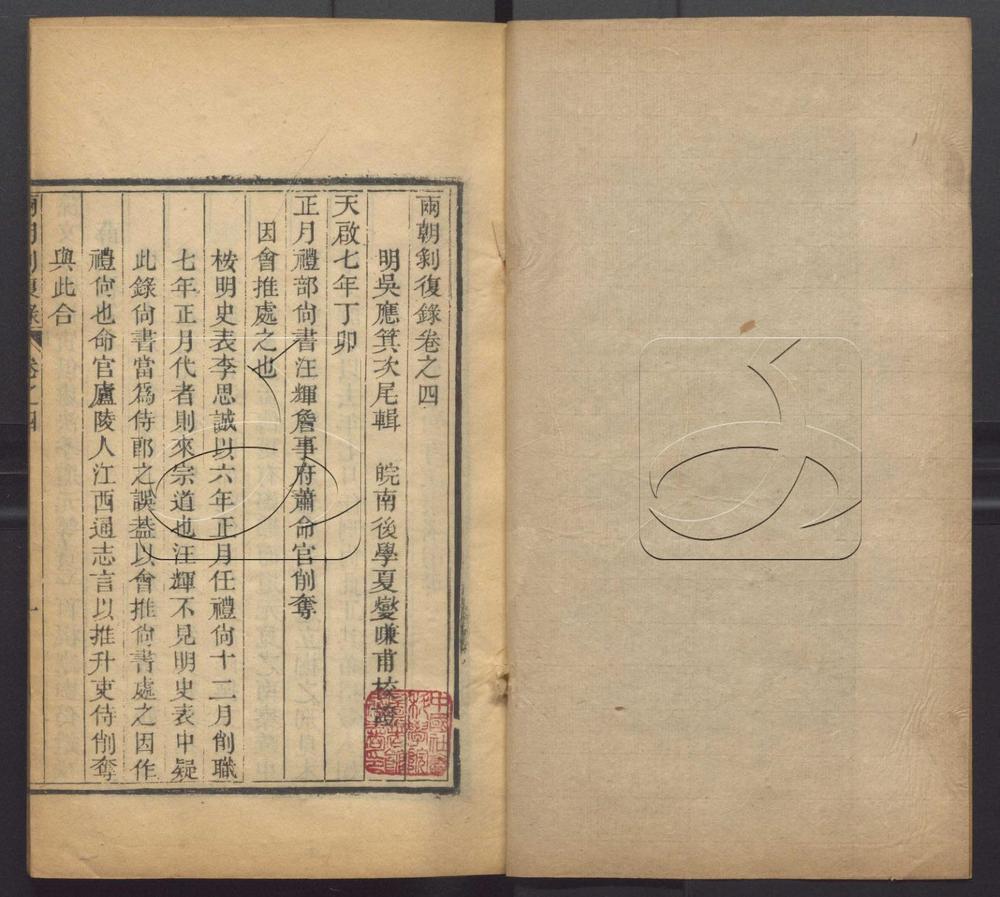 兩朝剝復錄卷之四
明吳應箕次尾輯　皖南後學夏燮嗛甫校證
天啟七年丁卯
正月禮部尙書汪輝詹事府蕭命官削奪
因會推處之也
桉明史表李思誠以六年正月任禮尙十二月削職
七年正月代者則來宗道也汪輝不見明史表中疑
此錄尙書當爲侍郎之誤葢以會推尙書處之因作
禮尙也命官廬陵人江西通志言以推升吏侍削奪
與此合
兩朝剝復錄　卷之四　一